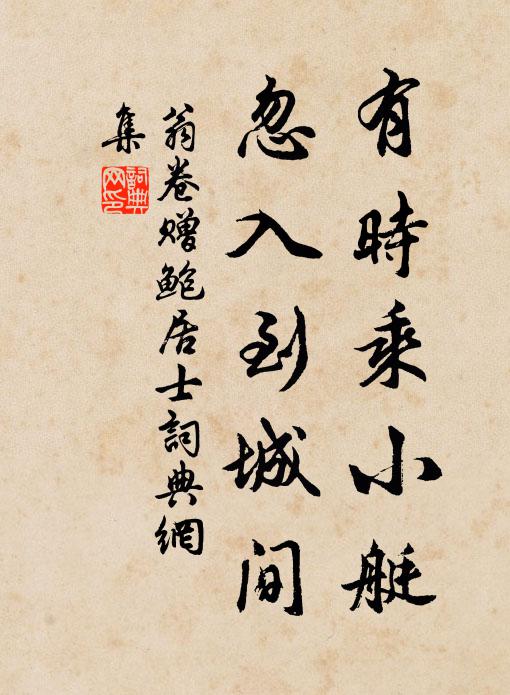 有時乘小艇
忽入到城間
翁卷贈鮑居士詞典網
集
詞典网印